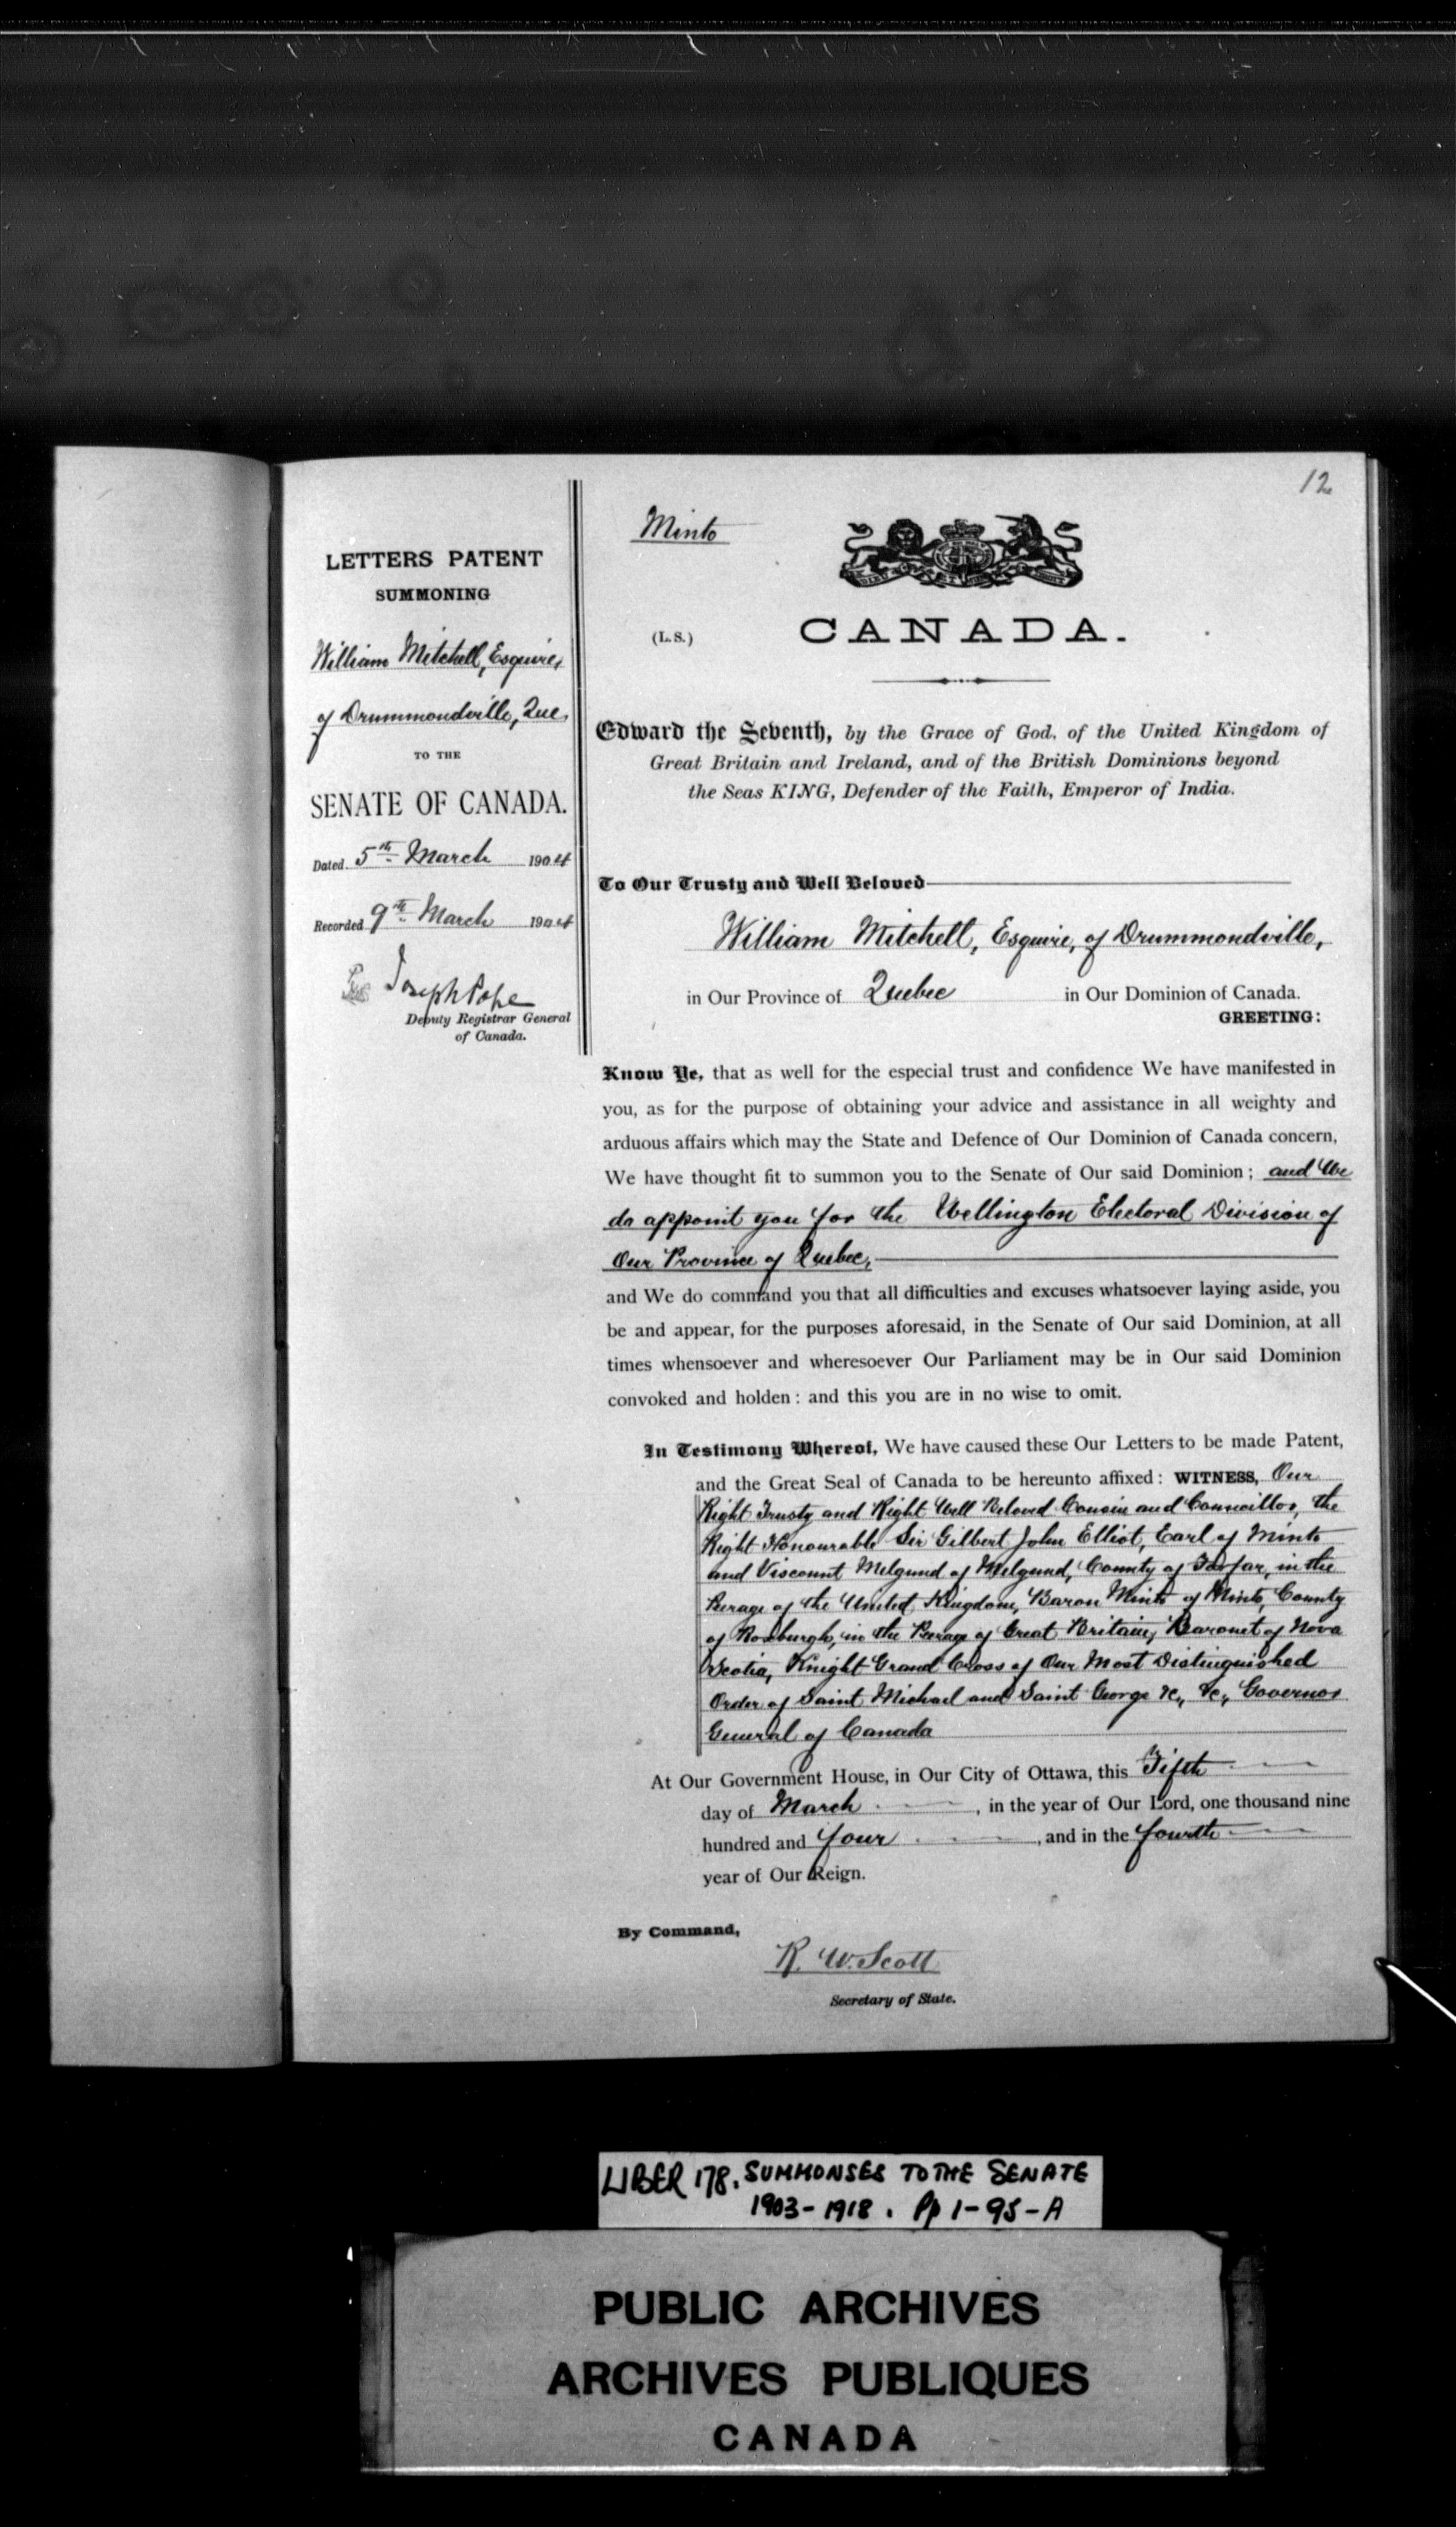 12
LETTERS PATENT
SUMMONING
William Mitchell, Esquire,
of Drummondville, Que,
TO THE
SENATE OF CANADA.
Dated 5th March 1904
Recorded 9th March 1904
Joseph Pope
Deputy Registrar General
of Canada.
Minto
(L.S.)
CANADA.
Edward the Seventh, by the Grace of God, of the United Kingdom of
Great Britain and Ireland, and of the British Dominions beyond
the Seas KING, Defender of the Faith, Emperor of India.
To Our Trusty and Well Beloved
William Mitchell, Esquire, of Drummondville,
in Our Province of Quebec in Our Dominion of Canada.
GREETING:
Know Ye, that as well for the especial trust and confidence We have manifested in
you, as for the purpose of obtaining your advice and assistance in all weighty and
arduous affairs which may the State and Defence of Our Dominion of Canada concern,
We have thought fit to summon you to the Senate of Our said Dominion; and We
do appoint you for the Wellington Electoral Division of
Our Province of Quebec,
and We do command you that all difficulties and excuses whatsoever laying aside, you
be and appear, for the purposes aforesaid, in the Senate of Our said Dominion, at all
times whensoever and wheresoever Our Parliament may be in Our said Dominion
convoked and holden: and this you are in no wise to omit.
In Testimony Whereof, We have caused these Our Letters to be made Patent,
and the Great Seal of Canada to be hereunto affixed: WITNESS, Our
Right Trusty and Right Well Beloved Cousin and Councillor, the
Right Honourable Sir Gilbert John Elliot, Earl of Minto
and Viscount Melgund of Melgund, County of Forfar, in the
Peerage of the United Kingdom, Baron Minto of Minto, County
of Roxburgh, in the Peerage of Great Britain, Baronet of Nova
Scotia, Knight Grand Cross of Our Most Distinguished
Order of Saint Michael and Saint George &c., &c., Governor
General of Canada
At Our Government House, in Our City of Ottawa, this Fifth
day of March, in the year of Our Lord, one thousand nine
hundred and four, and in the fourth
year of Our Reign.
By Command,
R. W. Scott
Secretary of State.
LIBER 178. SUMMONSES TO THE SENATE
1903-1918. Pp 1-95-A
PUBLIC ARCHIVES
ARCHIVES PUBLIQUES
CANADA